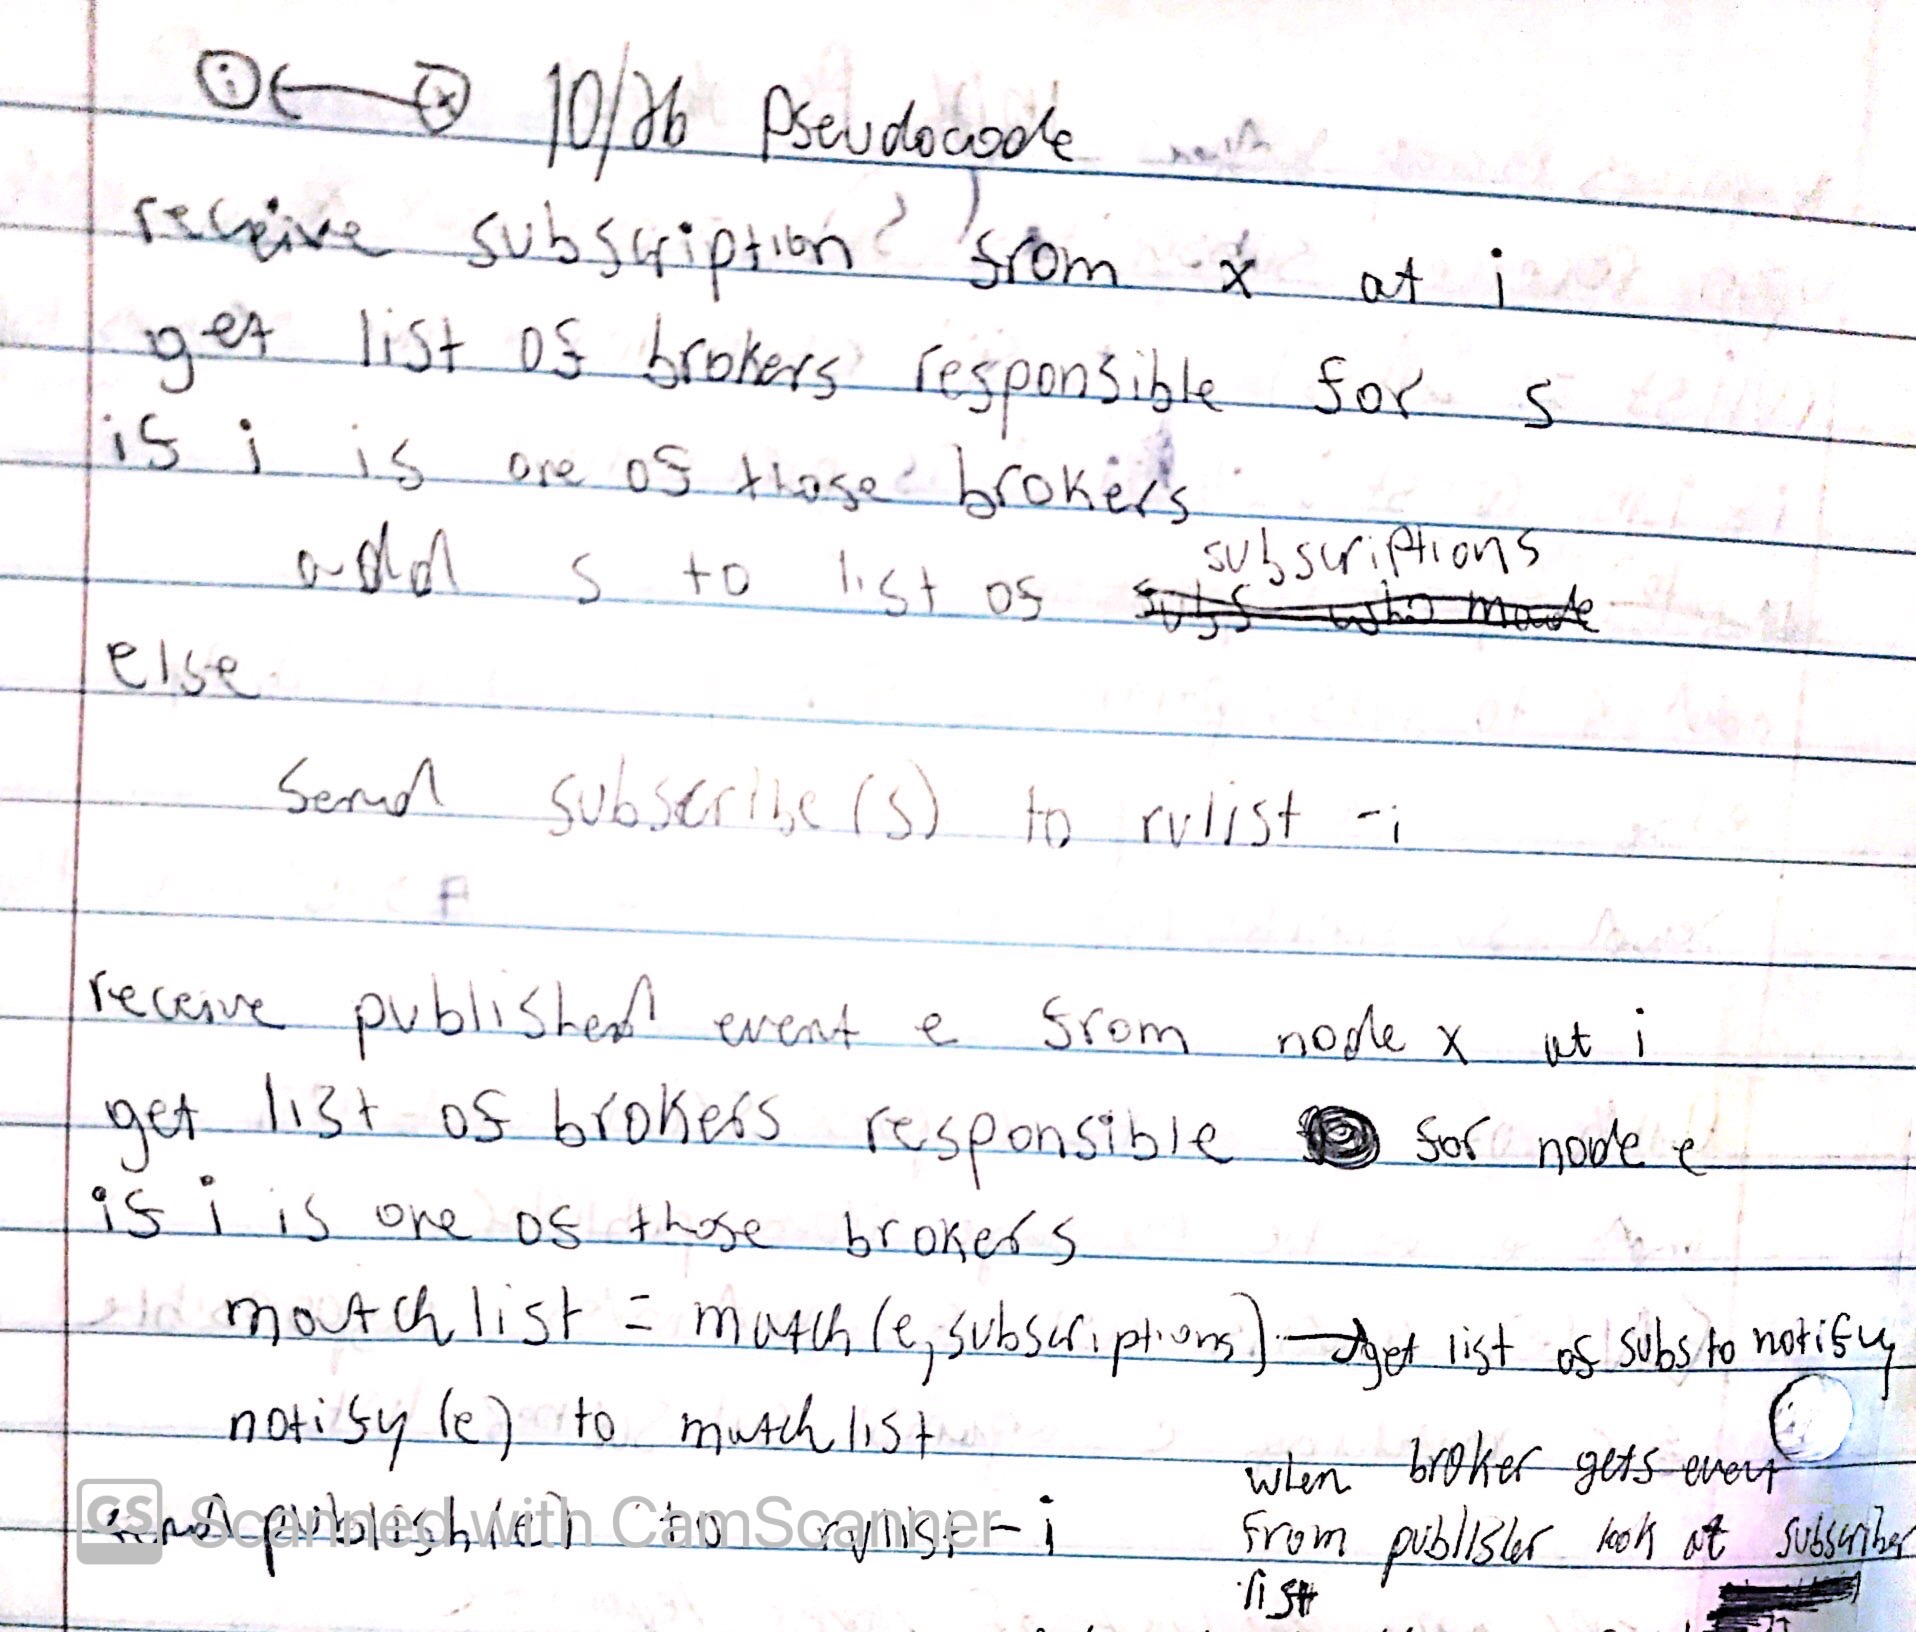 i x 10/26 Pseudocode
receive subscription from x at i
get list of brokers responsible for s
if i is one of those brokers
add s to list of subscriptions
subs who made
else
send subscribe(s) to rvlist -i
receive published event e from node x at i
get list of brokers responsible for node e
if i is one of those brokers
matchlist = match(e, subscriptions) → get list of subs to notify
notify(e) to matchlist
send publish(e) to rvlist - i
when broker gets event
from publisher look at subscriber
list
CS Scanned with CamScanner